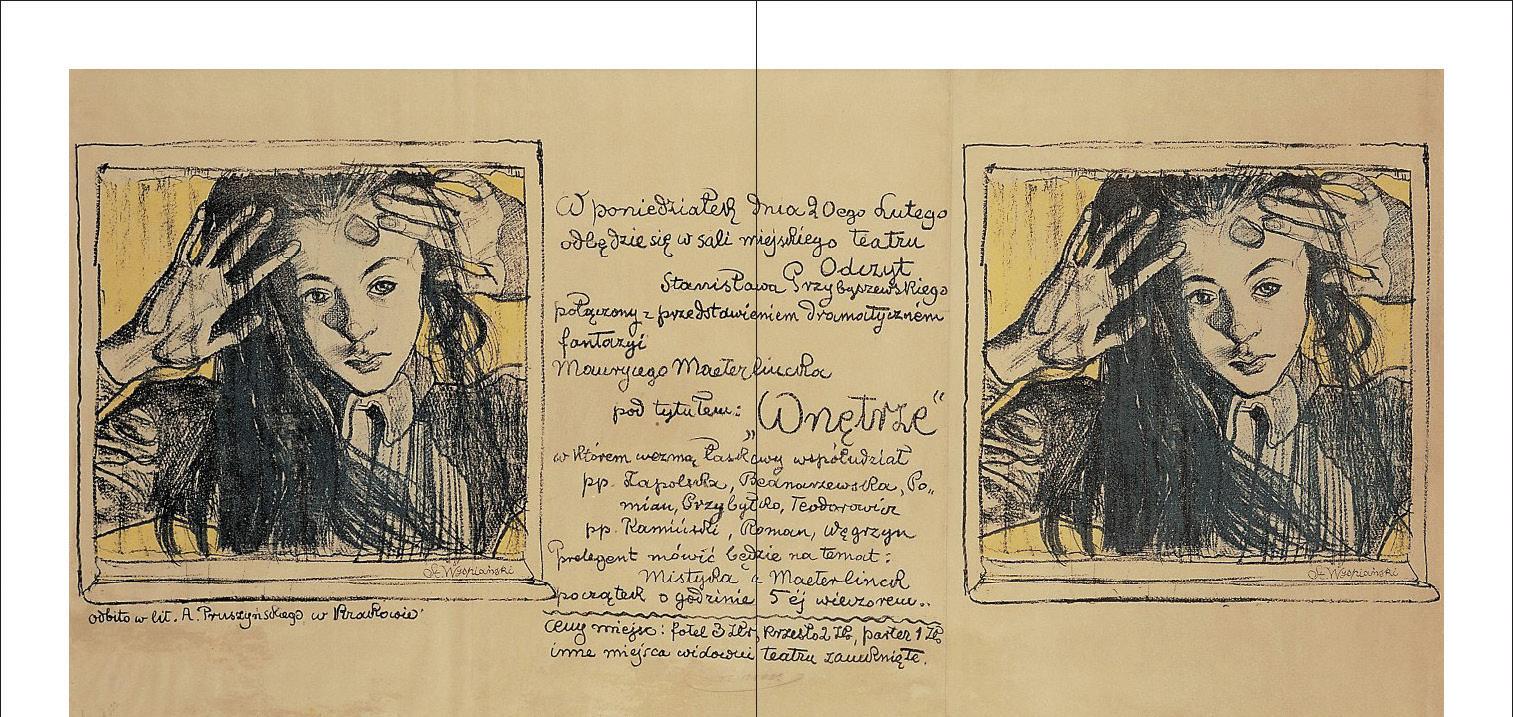 W poniedziałek dnia 20ego Lutego
odbędzie się w sali miejskiego teatru
Odczyt
Stanisława Przybyszewskiego
połączony z przedstawieniem dramatycznem
fantazyi
Maurycego Maeterlincka
pod tytułem:
„Wnętrze“
w którem wezmą łaskawy współudział
pp. Zapolska, Bednarzewska, Po„
mian, Przybyłko, Teodorowicz
pp. Kamiński, Roman, Węgrzyn
Prelegent mówić będzie na temat:
Mistyka a Maeterlinck
początek o godzinie 5ej wieczorem..
Ceny miejsc: fotel 3 Złr, krzesło 2 Zł, parter 1 Zł,
inne miejsca widowni teatru zamknięte.
St. Wyspiański
odbito w lit. A. Pruszyńskiego w Krakowie
St. Wyspiański